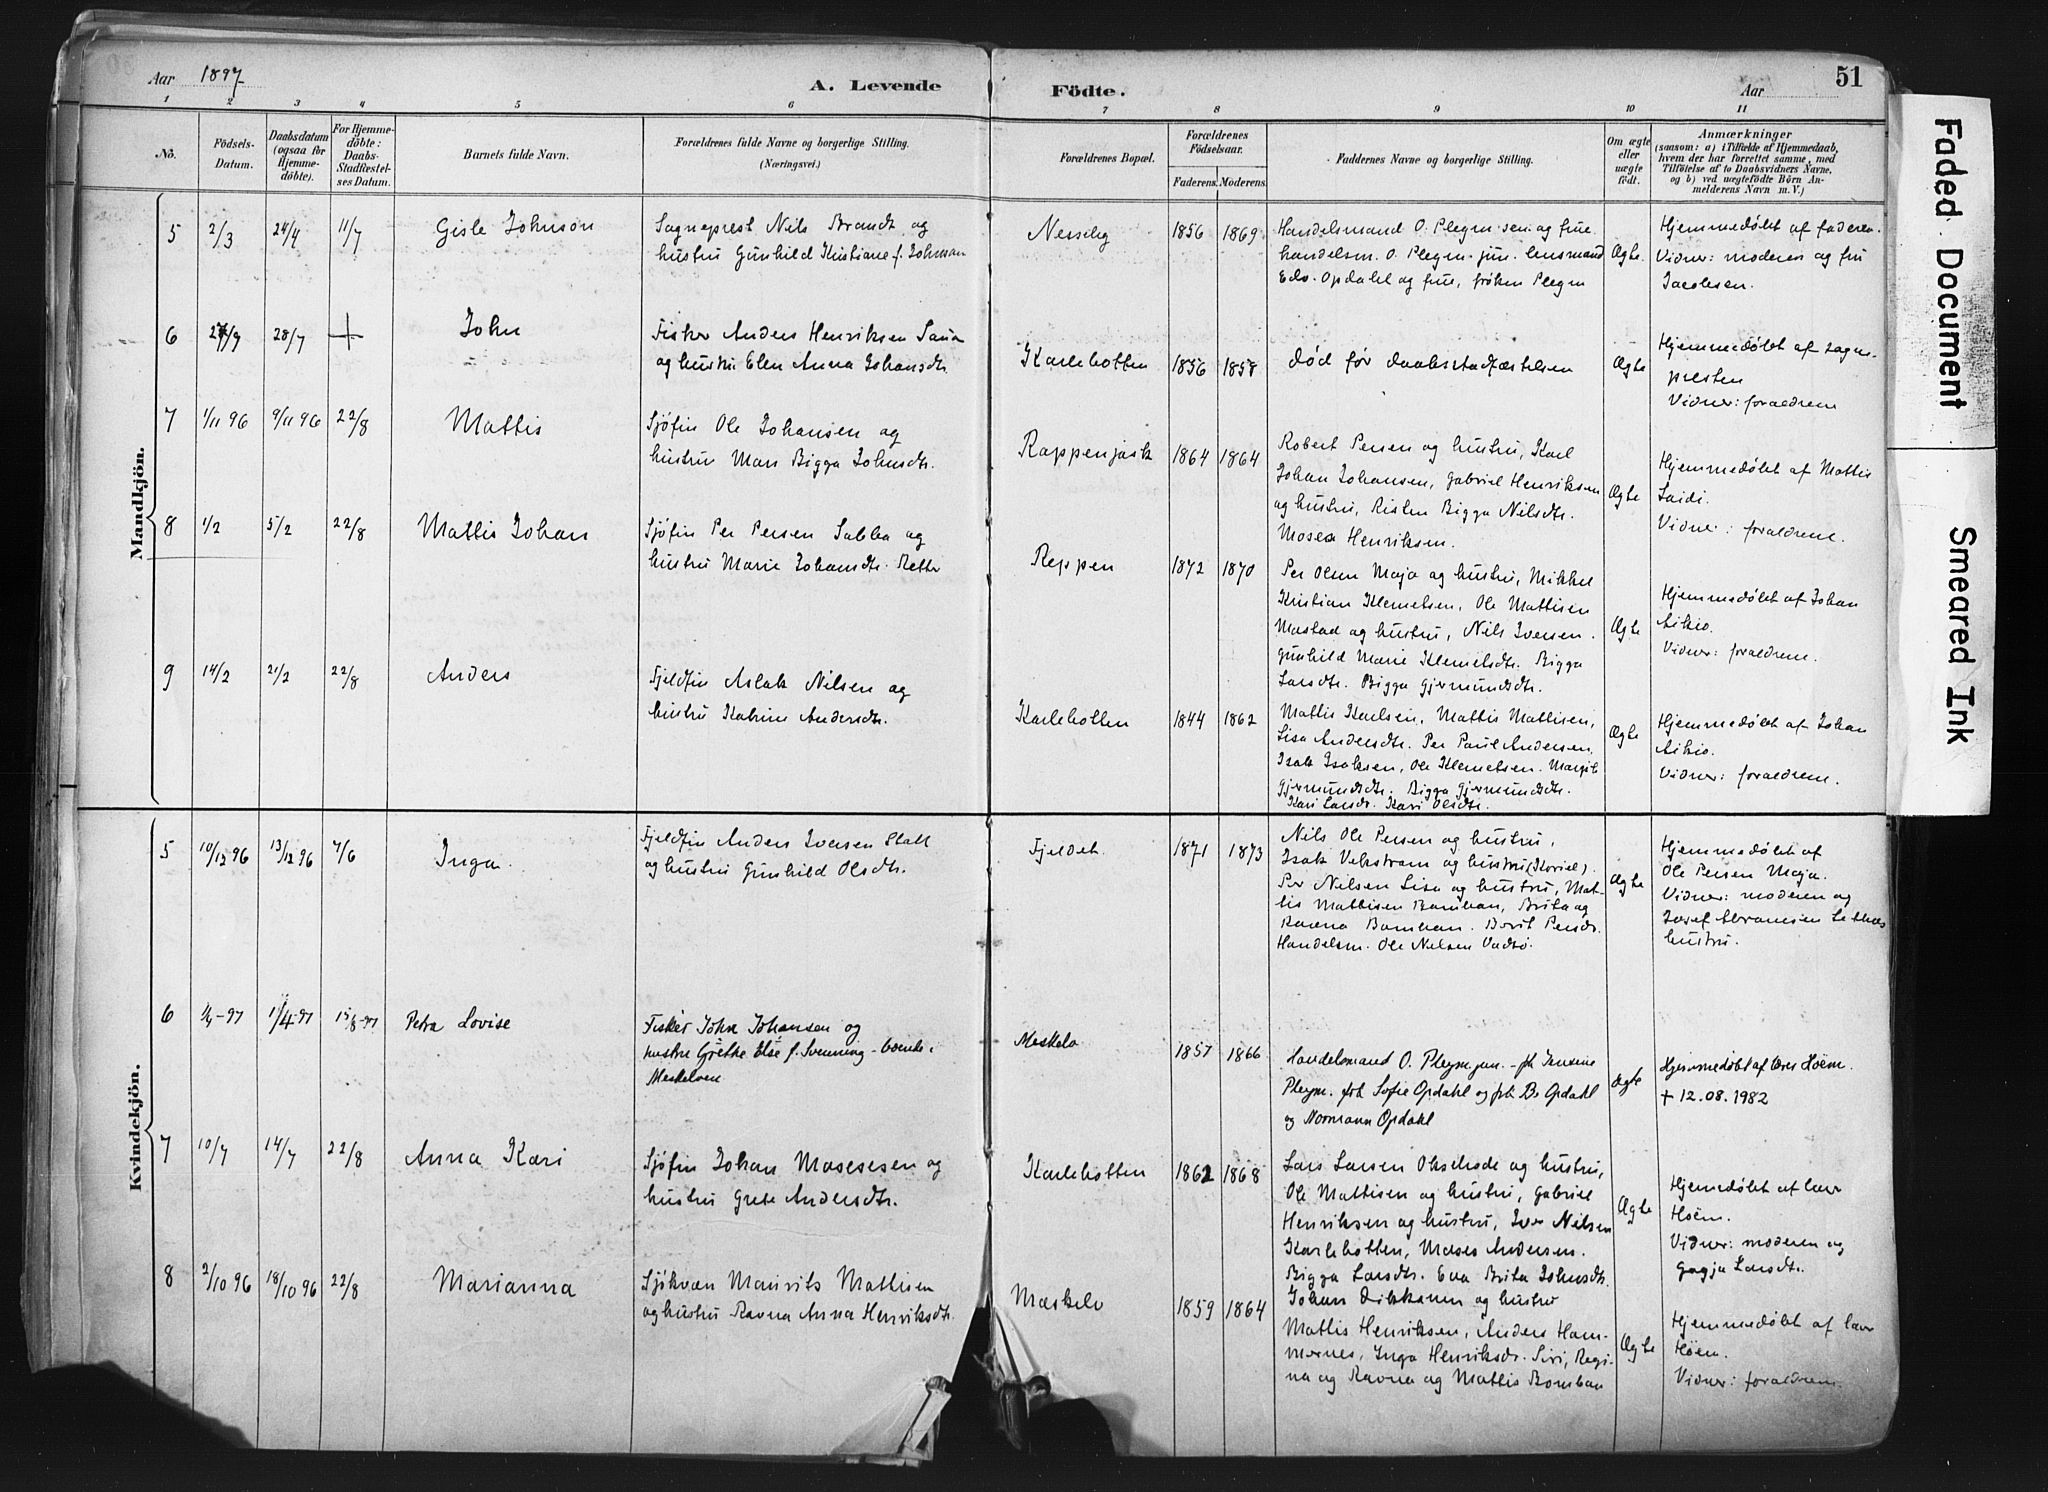 Aar 1897
A. Levende
Födte.
Aar
51
1 2 3 4 5 6 7 8 9 10 11
No.
Födsels-
Datum.
Daabsdatum
(ogsaa for
Hjemme-
döbte).
For Hjemme-
döbte:
Daabs-
Stadfæstel-
ses Datum.
Barnets fulde Navn.
Forældrenes fulde Navne og borgerlige Stilling.
(Næringsvei.)
Forældrenes Bopæl.
Forældrenes
Födselsaar.
Faderens. Moderens.
Faddernes Navne og borgerlige Stilling.
Om ægte
eller
uægte
födt.
Anmærkninger
(saasom: a) i Tilfælde af Hjemmedaab,
hvem der har forrettet samme, med
Tilföielse af to Daabsvidners Navne,
og b) ved uægtefödte Börn An-
melderens Navn m. V.)
Mandkjön.
5 2/3 24/4 11/7 Gisle Johnson
Sogneprest Nils Brandt og
hustru Gunhild Kristiane f. Johnson
Nesseby 1856 1869
Handelsmand O. Pleym sen. og frue
handelsm. O. Pleym jun. lensmand
Edv. Opdahl og frue, frøken Pleym
Ægte.
Hjemmedøbt af faderen.
Vidner: moderen og fru
Jacobsen.
6 28/7 + John
Fisker Anders Henriksen
og hustru Elen Anna Johansdtr.
Karlebotten 1856 1858
død før daabsstadfæstelsen
Ægte
Hjemmedøbt af sogne-
presten
Vidner: forældrene
7 1/11 96 9/11 96 22/8 Mattis
Sjøfin Ole Johansen og
hustru Mari Bigga Johnsdtr.
Rappenjask 1864 1864
Robert Persen og hustru, Karl
Johan Johansen, Gabriel Henriksen
og hustru, Risten Bigga Nilsdtr.
Moses Henriksen.
Ægte
Hjemmedøbt af Mattis
Saidi.
Vidner: forældrene.
8 1/2 5/2 22/8 Mattis Johan
Sjøfin Per Persen Sabba og
hustru Marie Johansdtr. Retter
Reppen 1872 1870
Per Olsen Maja og hustru, Mikkel
Kristian Klemetsen, Ole Mattisen
Mastad og hustru, Nils Iversen.
Gunhild Marie Klemetsdtr. Bigga
Larsdtr. Bigga Gjermundsdtr.
Ægte
Hjemmedøbt af Johan
Aikio.
Vidner: forældrene.
9 14/2 21/2 22/8 Anders
Fjeldfin Aslak Nilsen og
hustru Katrine Andersdtr.
Karlebotten 1844 1862
Mattis Karlsen, Mattis Mattisen,
Lisa Andersdtr. Per Paul Andersen,
Isak Isaksen, Ole Klemetsen. Margit
Gjermundsdtr. Bigga Gjermundsdtr.
Kari Larsdtr. Kari Olsdtr.
Ægte
Hjemmedøbt af Johan
Aikio.
Vidner: forældrene.
Kvindekjön.
5 10/12 96 13/12 96 7/6 Inga.
Fjeldfin Anders Iversen
og hustru Gunhild Olsdtr.
Fjeldet. 1871 1873
Nils Ole Persen og hustru,
Isak Vekstrøm og hustru
Per Nilsen Lisa og hustru, Mat-
tis Mattisen Bomban, Brita og
Ravna Bomban. Berit Persdtr.
Handelsm. Ole Nilsen Vadsø.
Ægte
Hjemmedøbt af
Ole Persen Maja.
Vidner: moderen og
Josef Abramsen
hustru.
6 15/8-97 Petra Lovise
Fisker John Johansen og
hustru Grethe Else f. Svenning - boende i
Meskelven
Meskelv 1857 1866
Handelsmand O. Pleym jun. - frk Jensine
Pleym. frk Sofie Opdahl og frk B. Opdahl
og Normann Opdahl
Ægte
Hjemmedøbt af lærer Hoëm.
+ 12.08.1982
7 10/7 14/7 22/8 Anna Kari
Sjøfin Johan Mosesesen og
hustru Grete Andersdtr.
Karlebotten 1862 1868
Lars Larsen Oksehode og hustru,
Ole Mattisen og hustru, Gabriel
Henriksen og hustru, Iver Nilsen
Karlebotten, Moses Andersen.
Bigga Larsdtr. Eva Brita Johnsdtr.
Ægte
Hjemedøbt af lærer
Höem.
Vidner: moderen og
Gagja Larsdtr.
8 2/10 96 18/10 96 22/8 Marianna
Sjökvæn Maurits Mattisen
og hustru Ravna Anna Henriksdtr.
Mæskelv 1859 1864
Johan Dikkanen og hustru
Mattis Henriksen, Anders Ham-
mernes, Inga Henriksdr. Siri, Regi-
na og Ravna og Mattis Bomban
Ægte
Hjemmedøbt af lærer
Höem.
Vidner: forældrene.
Faded Document
Smeared Ink